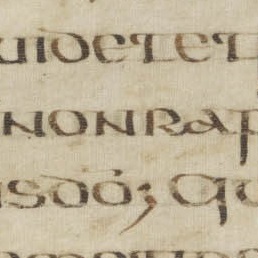 uidetet
nonrap
isdō; qu